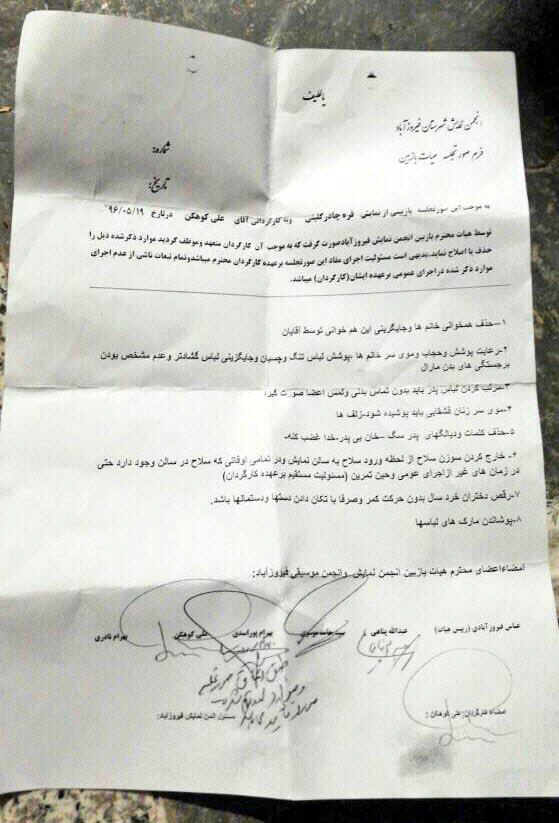 یا لطیف
انجمن نمایش شهرستان فیروزآباد
فرم صورتجلسه هیات بازبین
شماره:
تاریخ:
به موجب این صورتجلسه بازبینی از نمایش قره چادر گلینی وبه کارگردانی آقای علی کوهکن درتاریخ ۹۶/۰۵/۱۹
توسط هیات محترم بازبین انجمن نمایش فیروزآبادصورت گرفت که به موجب آن کارگردان متعهد وموظف گردید موارد ذکرشده ذیل را
حذف یا اصلاح نماید.بدیهی است مسئولیت اجرای مفاد این صورتجلسه برعهده کارگردان محترم میباشدوتمام تبعات ناشی از عدم اجرای
موارد ذکر شده دراجرای عمومی برعهده ایشان(کارگردان) میباشد.
۱-حذف همخوانی خانم ها وجایگزینی این هم خوانی توسط آقایان
۲-رعایت پوشش وحجاب وموی سر خانم ها ،پوشش لباس تنگ وچسبان وجایگزینی لباس گشادتر وعدم مشخص بودن
برجستگی های بدن مارال
۳-مرتب کردن لباس پدر باید بدون تماس بدنی ولمس اعضا صورت گیرد
۴-موی سر زنان قشقایی باید پوشیده شود-زلف ها
۵-حذف کلمات ودیالگهای پدر سگ -خان بی پدر-خدا غضب کنه-
۶- خارج کردن سوزن سلاح از لحظه ورود سلاح به سالن نمایش ودر تمامی اوقاتی که سلاح در سالن وجود دارد حتی
در زمان های غیر ازاجرای عمومی وحین تمرین (مسئولیت مستقیم برعهده کارگردان)
۷-رقص دختران خرد سال بدون حرکت کمر وصرفا با تکان دادن دستها ودستمالها باشد.
۸-پوشاندن مارک های لباسها
امضاءاعضای محترم هیات بازبین انجمن نمایش وانجمن موسیقی فیروزآباد:
عباس فیروزآبادی (رییس هیات) عبدالله پناهی بهرام پوراسدی علی کوهکن بهرام نادری
امضاء کارگردان: علی کوهکن :
مسئول انجمن نمایش فیروزآباد: